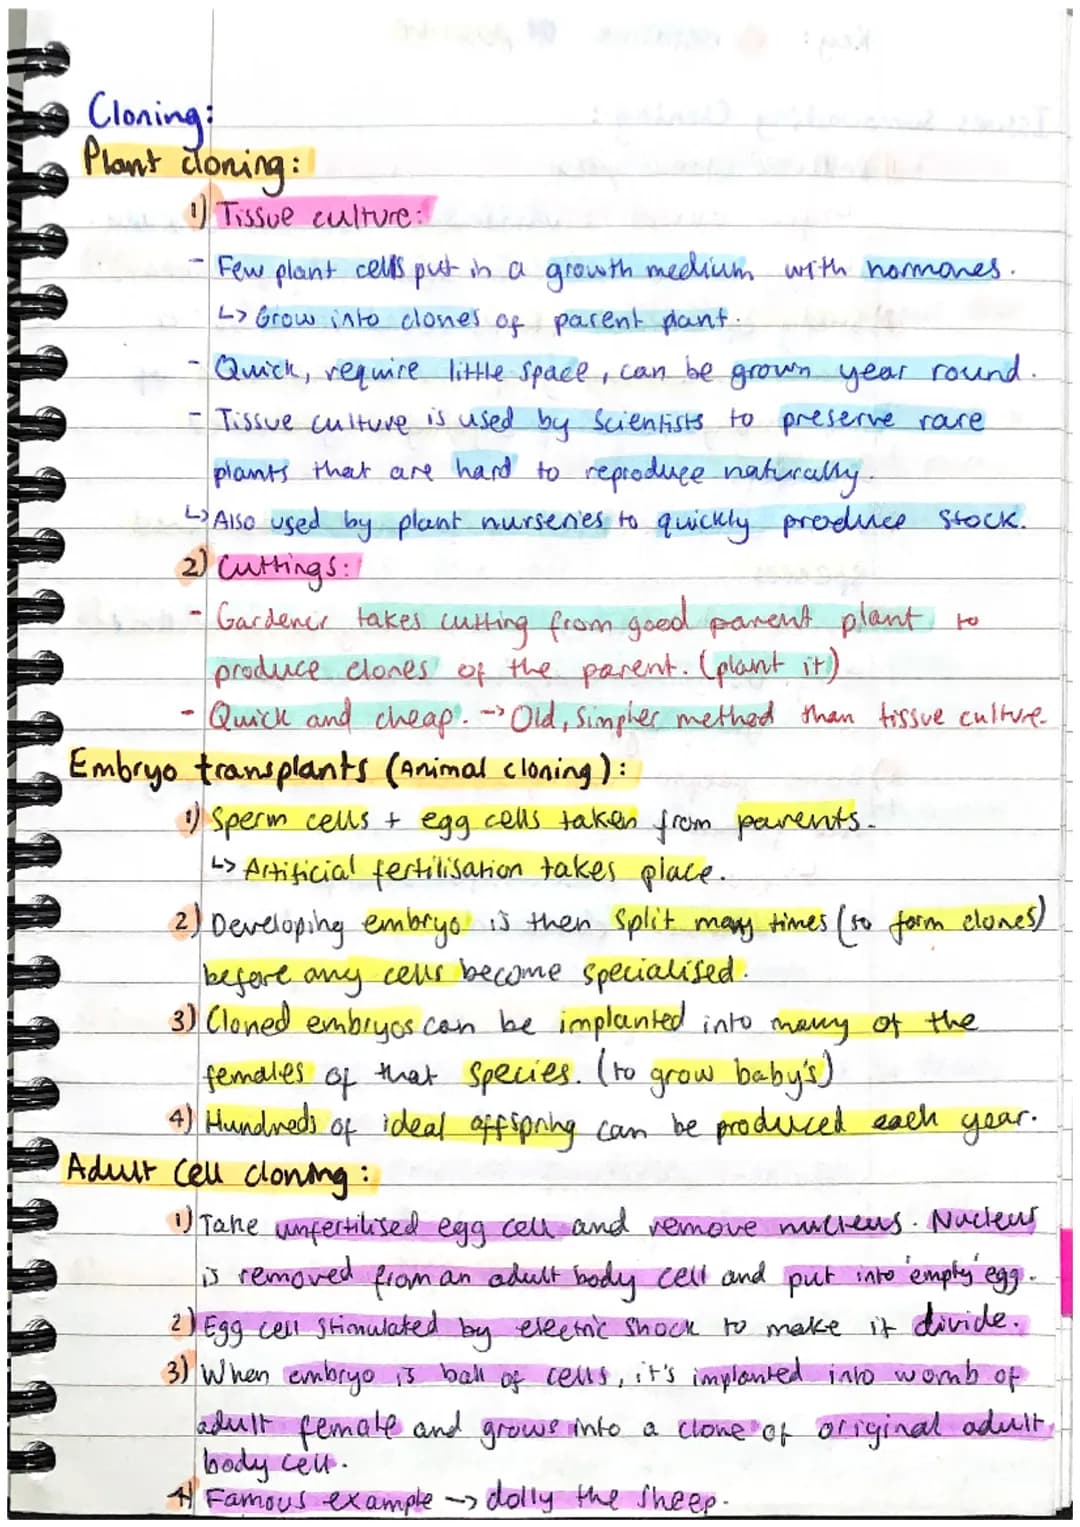 Cloning:
Plant cloning:
1) Tissue culture:
- Few plant cells put in a growth medium with hormones.
↳ Grow into clones of parent plant.
- Quick, require little space, can be grown year round.
- Tissue culture is used by scientists to preserve rare
plants that are hard to reproduce naturally.
↳ Also used by plant nurseries to quickly produce stock.
2) Cuttings:
- Gardener takes cutting from good parent plant to
produce clones of the parent. (plant it)
- Quick and cheap. -> Old, simpler method than tissue culture.
Embryo transplants (Animal cloning):
1) Sperm cells + egg cells taken from parents.
↳ Artificial fertilisation takes place.
2) Developing embryo is then split many times (to form clones)
before any cells become specialised.
3) Cloned embryos can be implanted into many of the
females of that species. (to grow baby's)
4) Hundreds of ideal offspring can be produced each year.
Adult cell cloning:
1) Take unfertilised egg cell and remove nucleus. Nucleus
is removed from an adult body cell and put into 'empty' egg.
2) Egg cell stimulated by electric shock to make it divide.
3) When embryo is ball of cells, it's implanted into womb of
adult female and grows into a clone of original adult
body cell.
4) Famous example -> dolly the sheep.